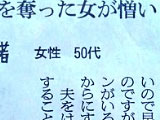 を奪った女が憎い
女性 50代
いので早
のですが
からにす
ンがいる
夫をは
すること